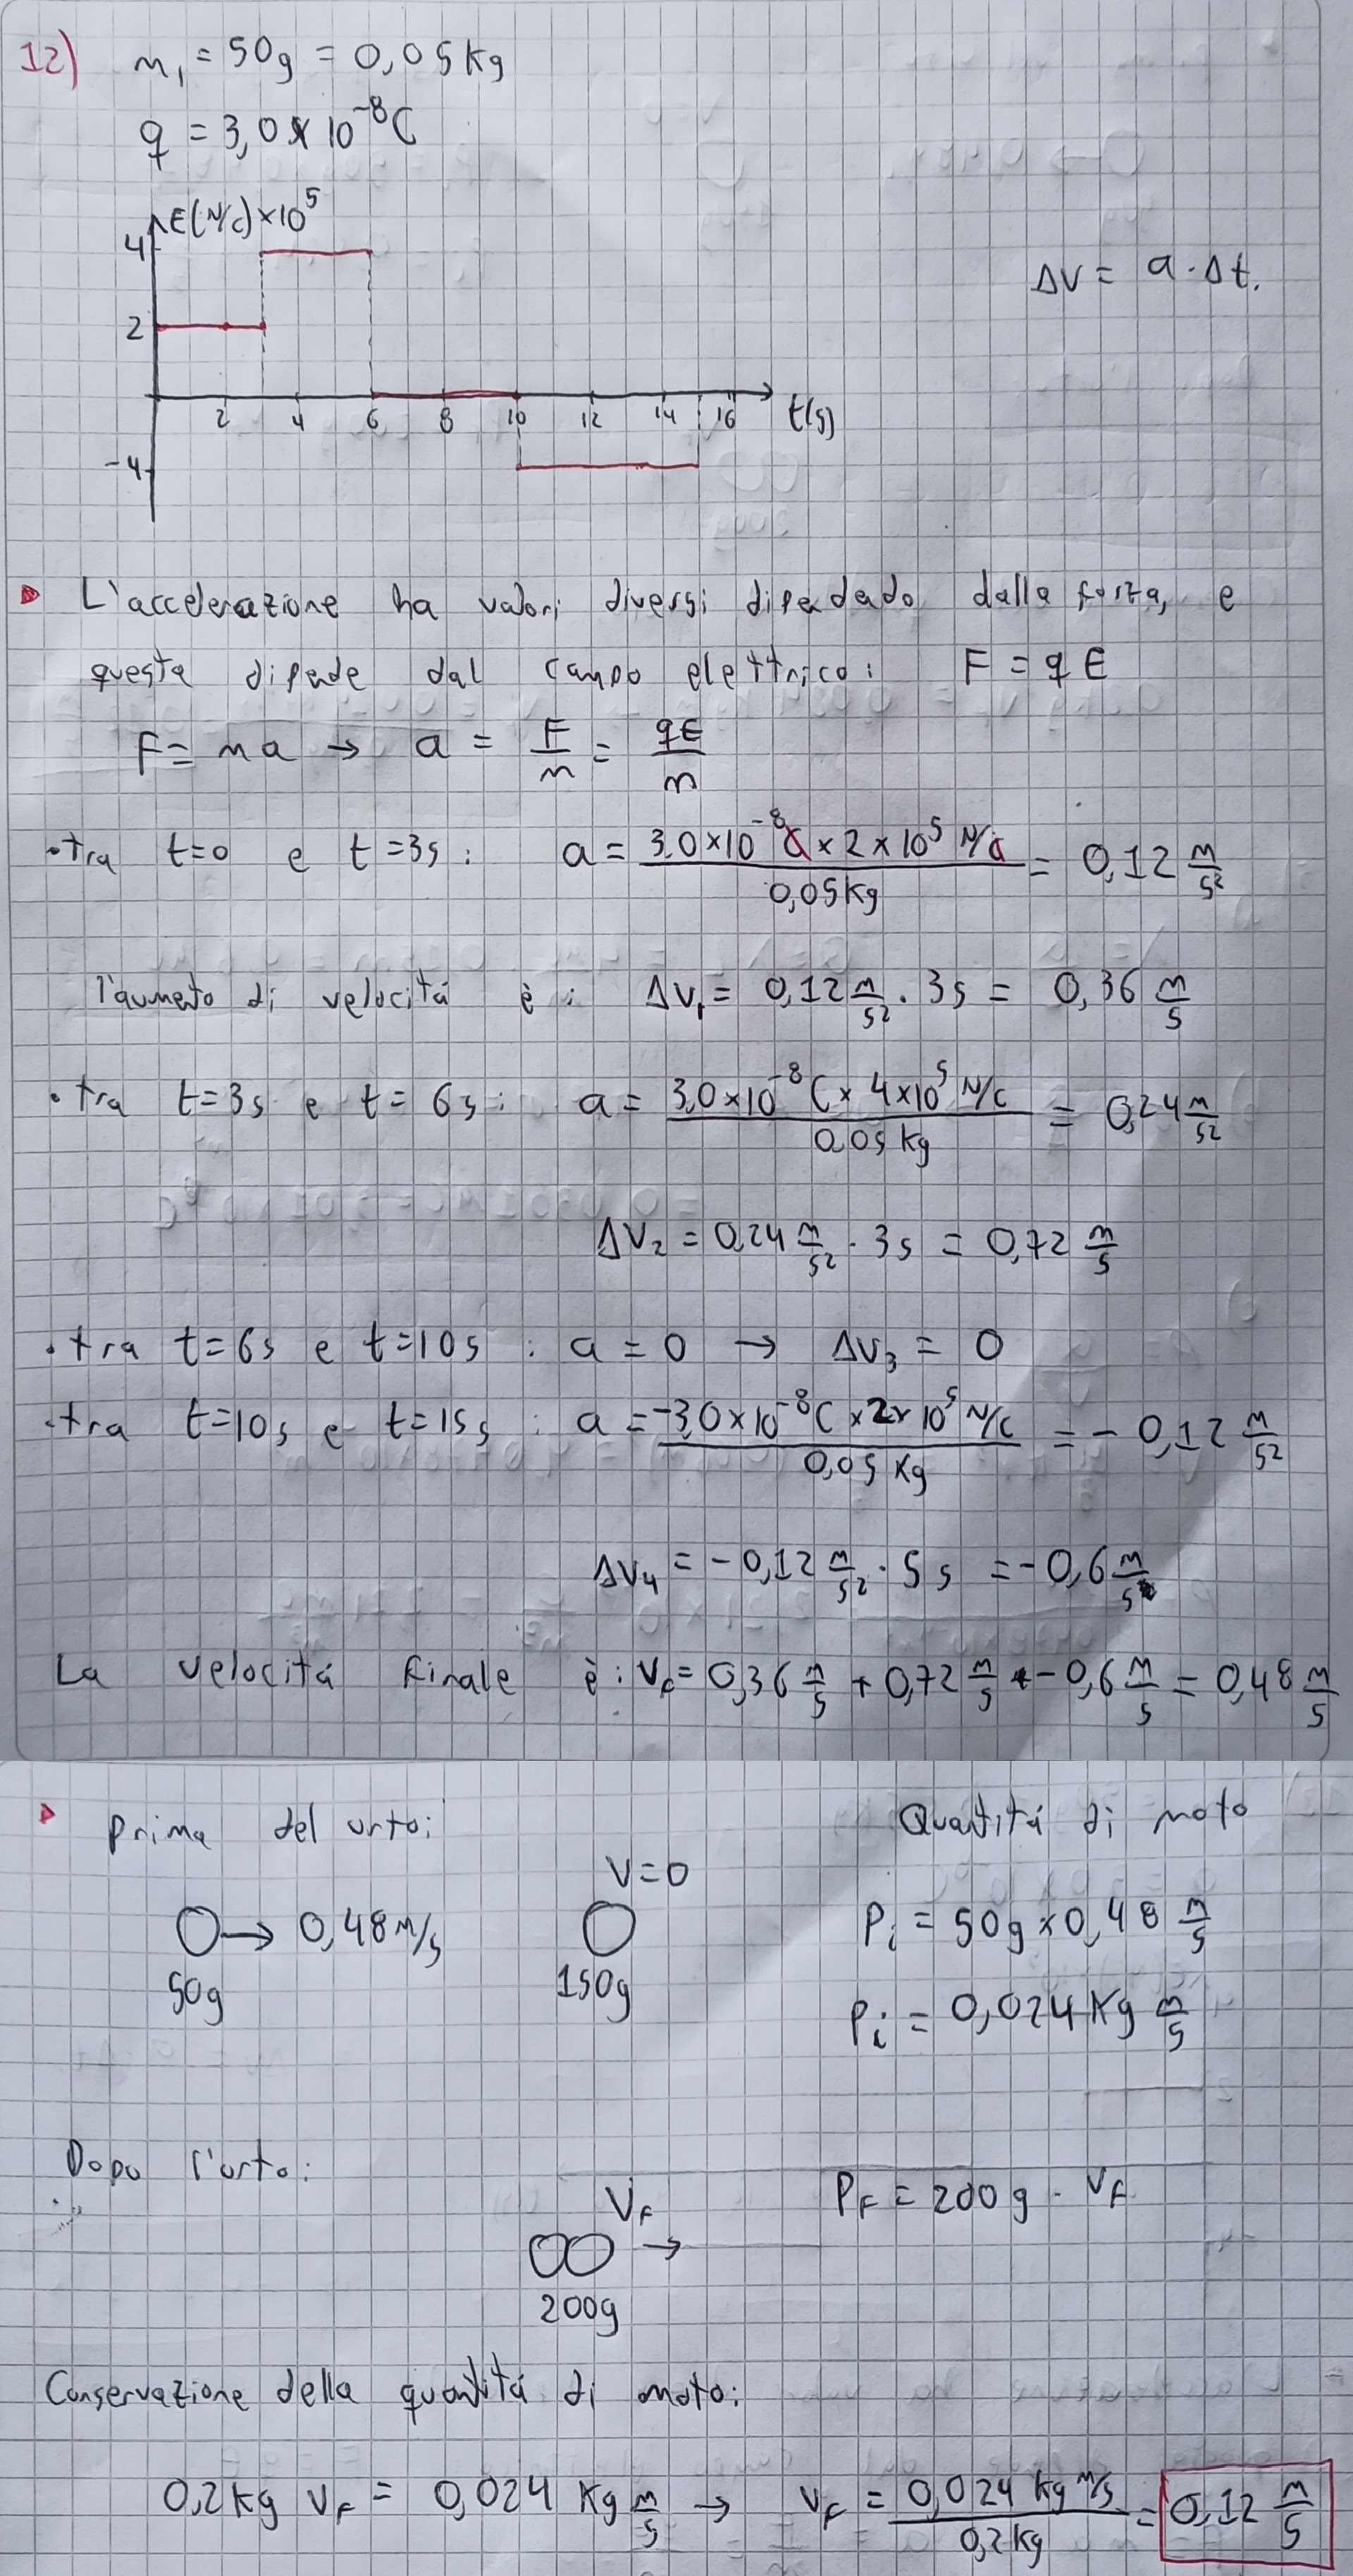 12) m₁ = 50g = 0,05kg
q = 3,0 × 10⁻⁸C
E(N/C)×10⁵
4
2
-4
2 4 6 8 10 12 14 16 t(s)
ΔV = a · Δt.
L'accelerazione ha valori diversi dipendado dalla forza, e
questa dipende dal campo elettrico: F = qE
F = ma → a = F/m = qE/m
• tra t=0 e t=3s: a = (3,0×10⁻⁸C × 2 × 10⁵ N/C)/(0,05kg) = 0,12 m/s²
l'aumento di velocitá è: ΔV₁ = 0,12 m/s² · 3s = 0,36 m/s
• tra t=3s e t=6s: a = (3,0×10⁻⁸C × 4×10⁵ N/C)/(0,05kg) = 0,24 m/s²
ΔV₂ = 0,24 m/s² · 3s = 0,72 m/s
• tra t=6s e t=10s: a = 0 → ΔV₃ = 0
• tra t=10s e t=15s: a = (-3,0×10⁻⁸C × 2×10⁵ N/C)/(0,05 kg) = -0,12 m/s²
ΔV₄ = -0,12 m/s² · 5s = -0,6 m/s
La velocitá finale è: V_F = 0,36 m/s + 0,72 m/s - 0,6 m/s = 0,48 m/s
Prima del urto:
Quantitá di moto
V=0
→ 0,48 m/s
50g
150g
P_i = 50g × 0,48 m/s
P_i = 0,024 kg m/s
Dopo l'urto:
V_F
→
200g
P_F = 200g · V_F
Conservazione della quantitá di moto:
0,2kg V_F = 0,024 kg m/s → V_F = (0,024 kg m/s)/(0,2kg) = 0,12 m/s